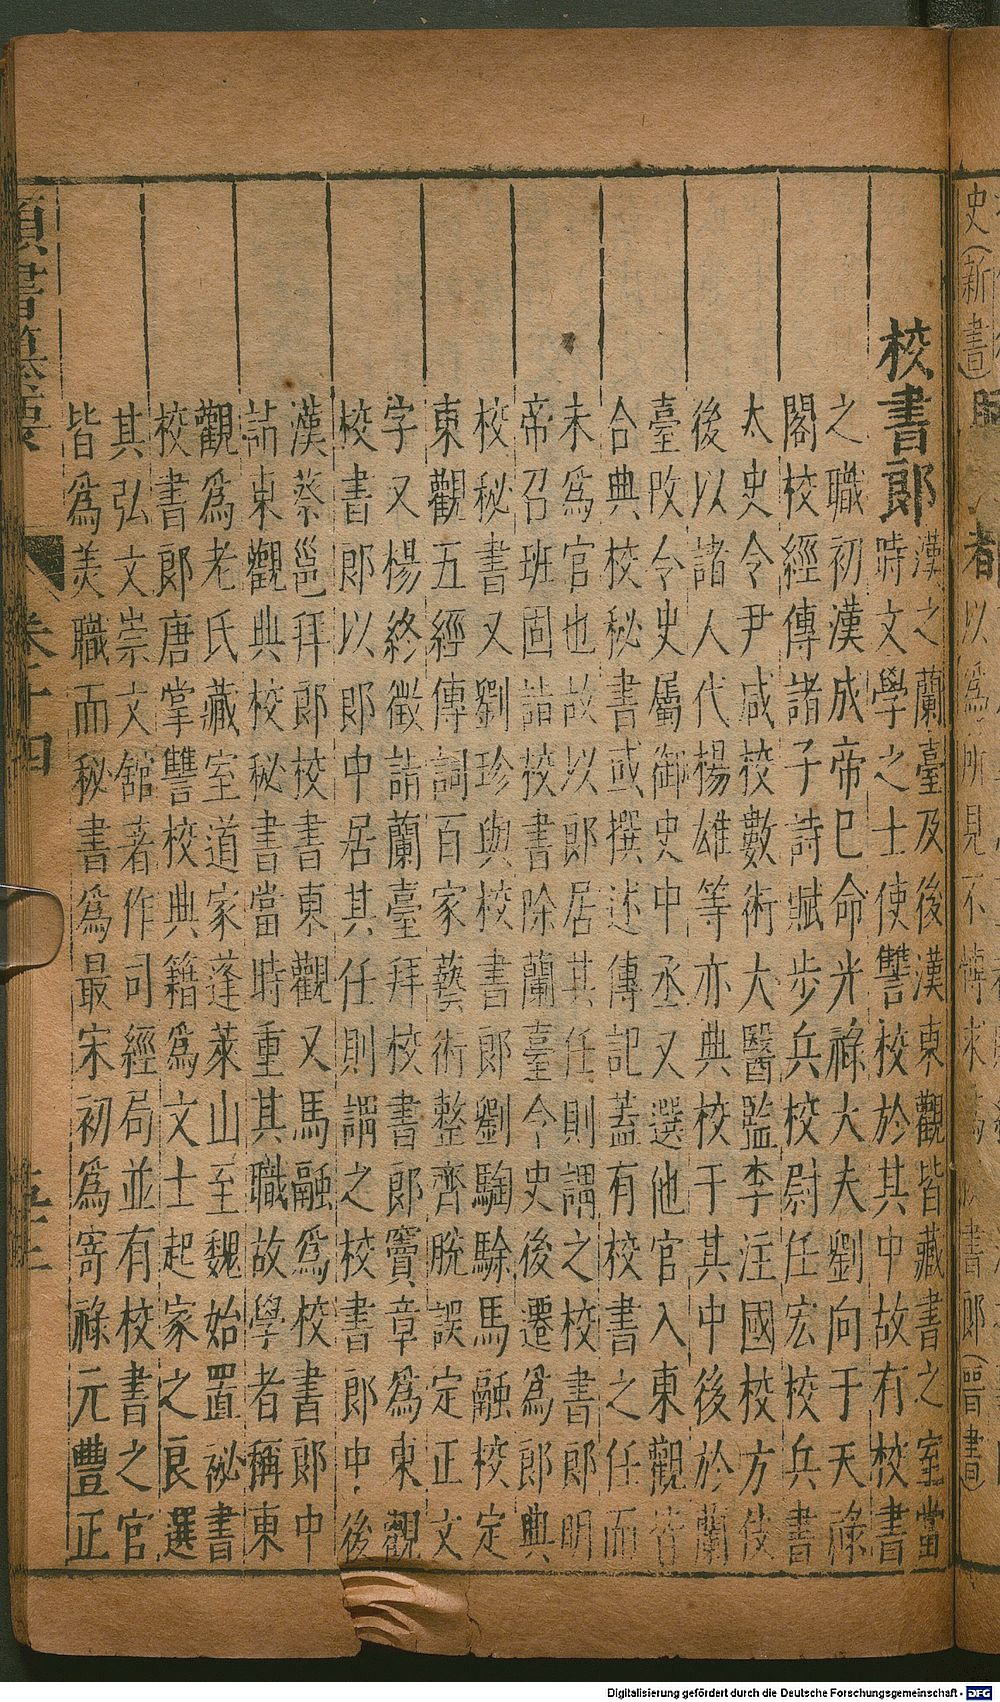 校書郎
漢之蘭臺及後漢東觀皆藏書之室當
時文學之士使讐校於其中故有校書
之職初漢成帝巳命光祿大夫劉向于天祿
閣校經傳諸子詩賦步兵校尉任宏校兵書
太史令尹咸校數術大醫監李注國校方伎
後以諸人代楊雄等亦典校于其中後於蘭
臺攺令史屬御史中丞又選他官入東觀皆
合典校秘書或撰述傳記蓋有校書之任而
未為官也故以郎居其任則謂之校書郎明
帝召班固詣校書除蘭臺令史後遷爲郎典
校秘書又劉珍與校書郎劉騊駼馬融校定
東觀五經傳詞百家藝術整齊脫誤定正文
字又楊終徵詣蘭臺拜校書郎竇章爲東觀
校書郎以郎中居其任則謂之校書郎中後
漢蔡邕拜郎校書東觀又馬融爲校書郎中
詣東觀典校秘書當時重其職故學者稱東
觀爲老氏藏室道家蓬萊山至魏始置祕書
校書郎唐掌讐校典籍爲文士起家之良選
其弘文崇文舘著作司經局並有校書之官
皆爲美職而秘書爲最宋初爲寄祿元豐正
卷十四
史(新書)
者以爲所見不博求爲書郎(晋書)
Digitalisierung gefördert durch die Deutsche Forschungsgemeinschaft - DFG